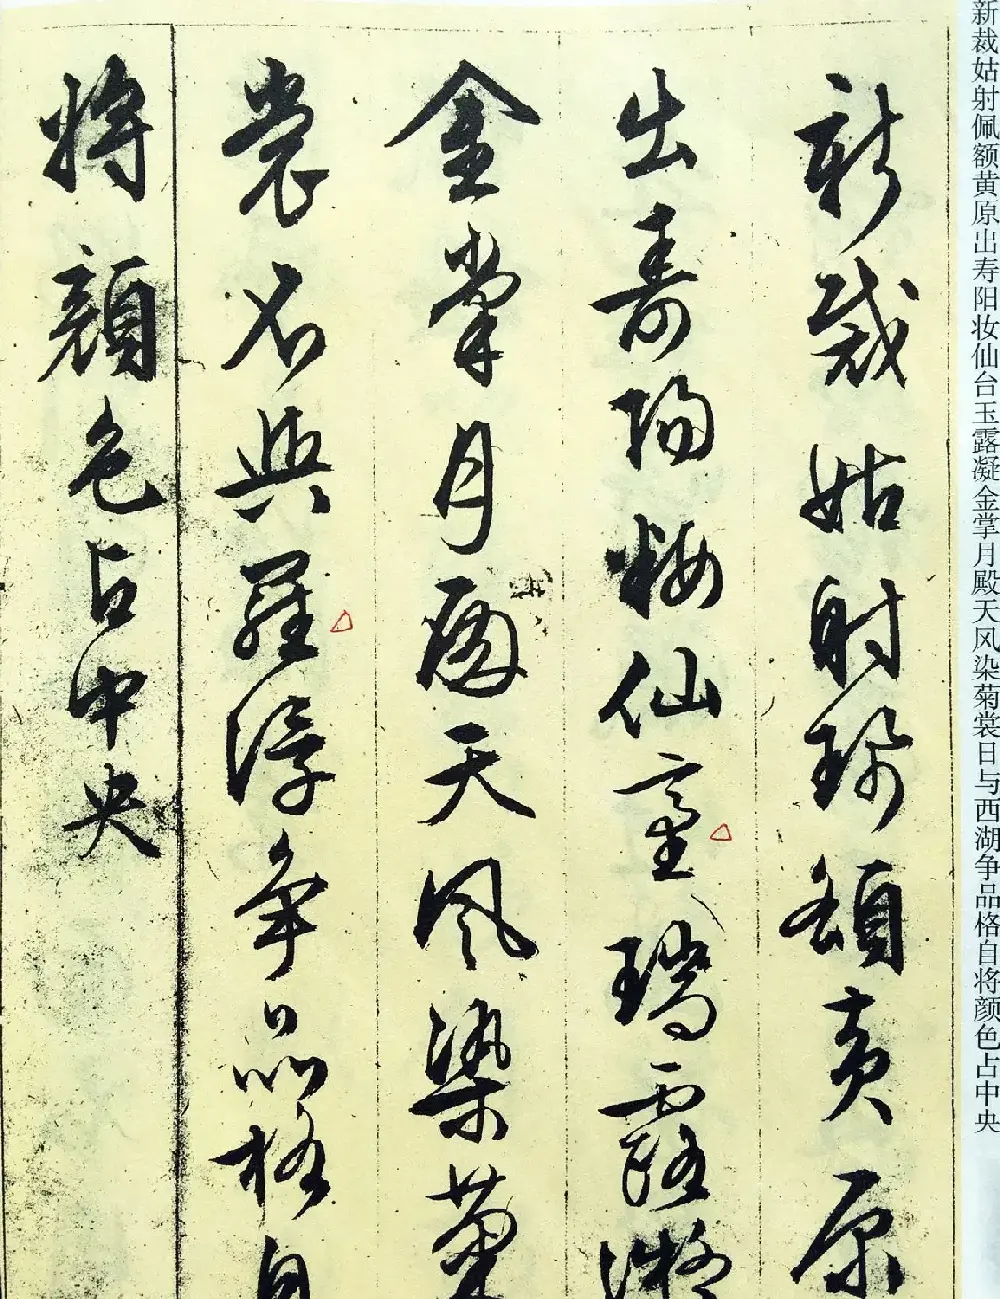 新裁姑射佩额黄原出寿阳妆仙台玉露凝金掌月殿天风染菊裳日与西湖争品格自将颜色占中央
新裁姑射珮額黄原
出壽陽粧仙臺瑞露凝
金掌月殿天風染菊
裳名與羅浮争品格自
將顔色占中央